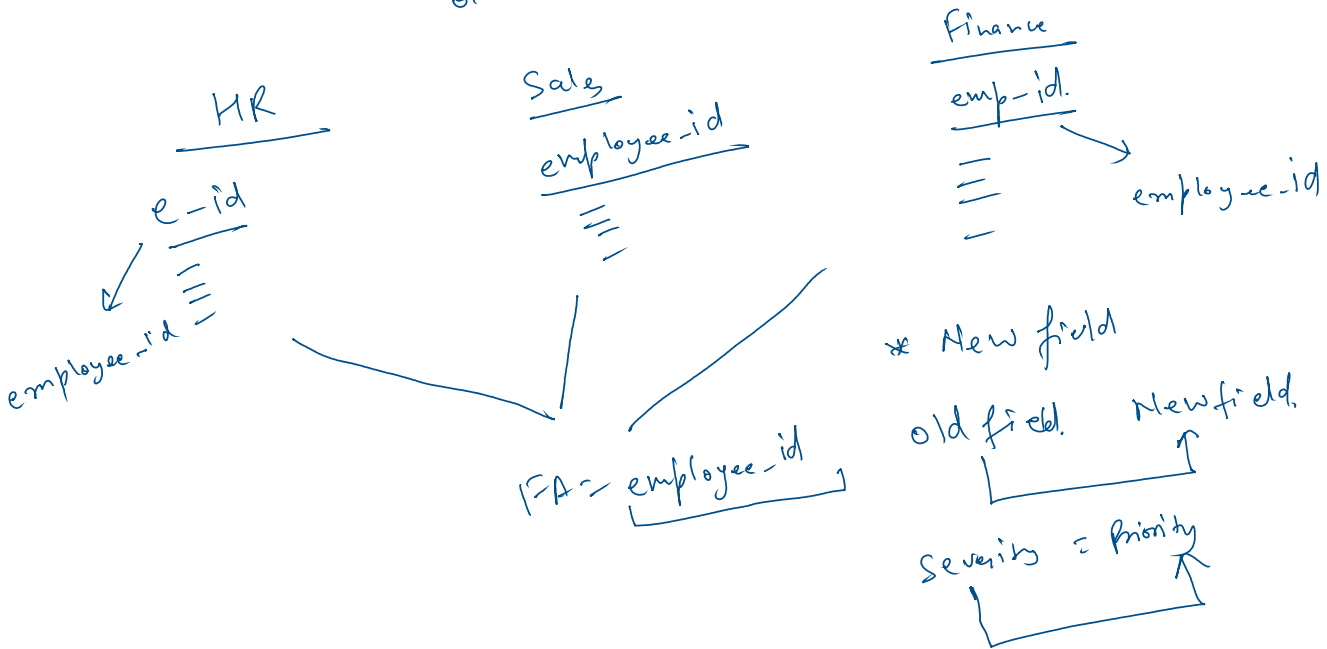 HR
e-id
employee-id
Sales
employee-id
Finance
emp-id.
employee-id
FA = employee-id
* New field
old field. New field.
Severity = Priority